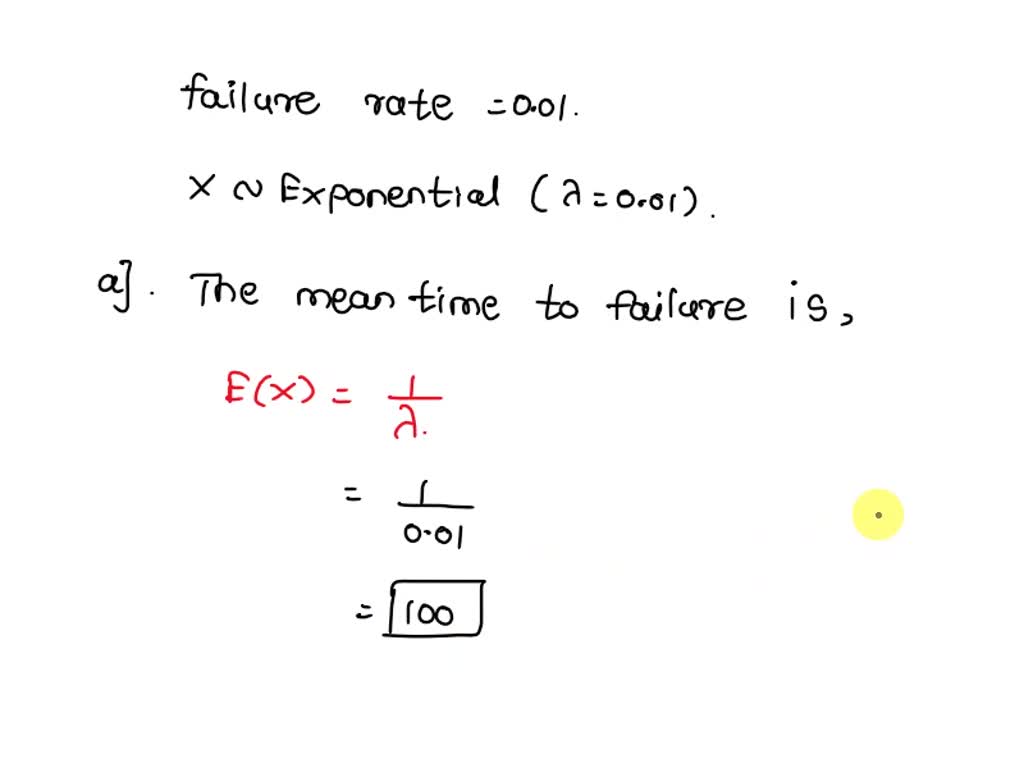 failure rate = 0.01.
X ~ Exponential (λ = 0.01).
a]. The mean time to failure is,
E(X) = 1/λ.
= 1/0.01
= 100